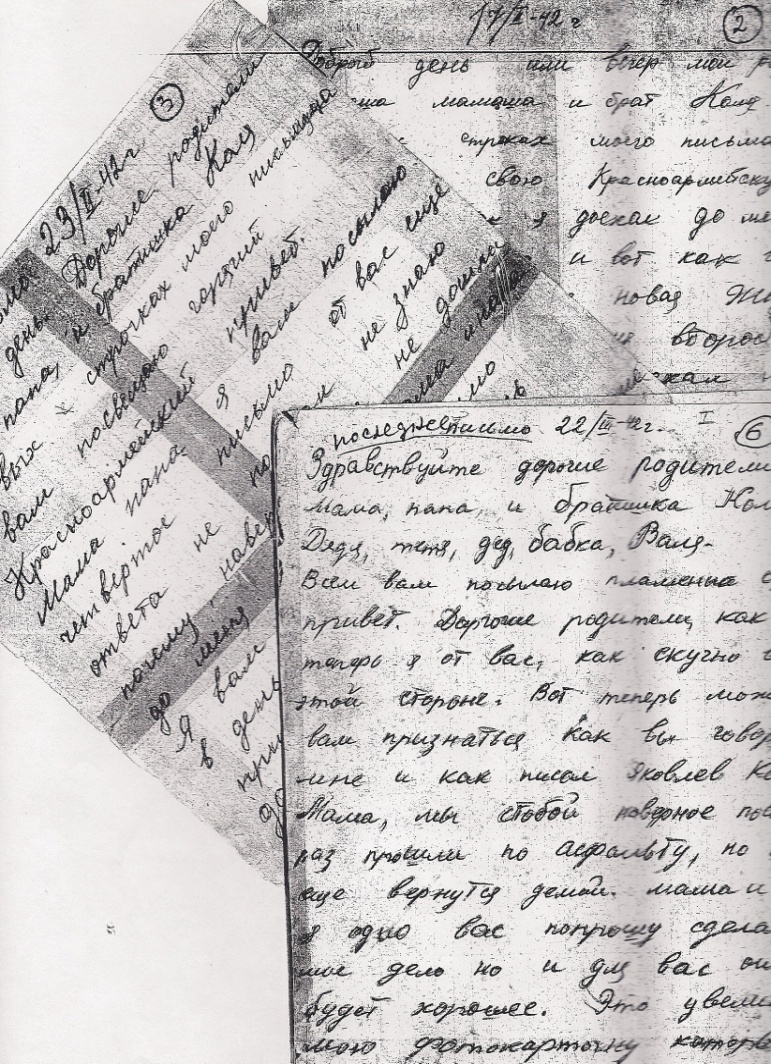 17/II-42 г
2
Добрый день или вечер мои
мамаша и брат Коля
строках моего письма
свою Красноармейску
я доехал до ме
и вот как
новая жи
второ
ехал
3
23/II-42 г.
день. Дорогие родители
папа, и братишка Коля
вых строчках моего письмеца
вам посвещаю горячий
Красноармейский привет.
Мама папа я вам посылаю
четвертое письмо от вас еще
ответа не не знаю
почему, наве не дошли
до меня
Я вам
в день
при
последнее письмо 22/III-42 г. I
6
Здравствуйте дорогие родители
Мама, папа, и братишка Кол
Дядя, тетя, дед, бабка, Валя-
Всем вам посылаю пламеный
привет. Дорогие родители, как
теперь я от вас, как скучно
этой стороне. Вот теперь мож
вам признаться как вы говор
мне и как писал Яковлев Ко
Мама, мы стобой наверное пос
раз прошли по асфальту, но
еще вернутся домой. мама и
я одно вас попрошу сдела
мое дело но и для вас он
будет хорошее. Это увели
мою фотокарточку котор